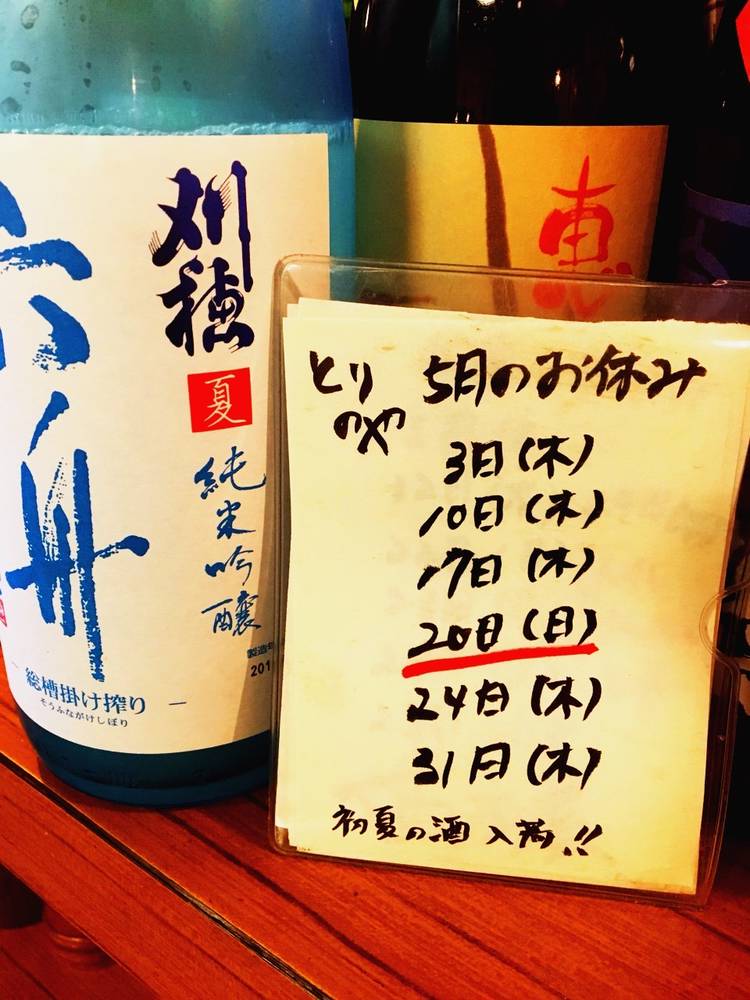 六舟
刈穂
夏
純米吟醸
総槽掛け搾り
そうふながけしぼり
201
とりのや
5月のお休み
3日(木)
10日(木)
17日(木)
20日(日)
24日(木)
31日(木)
初夏の酒入荷!!